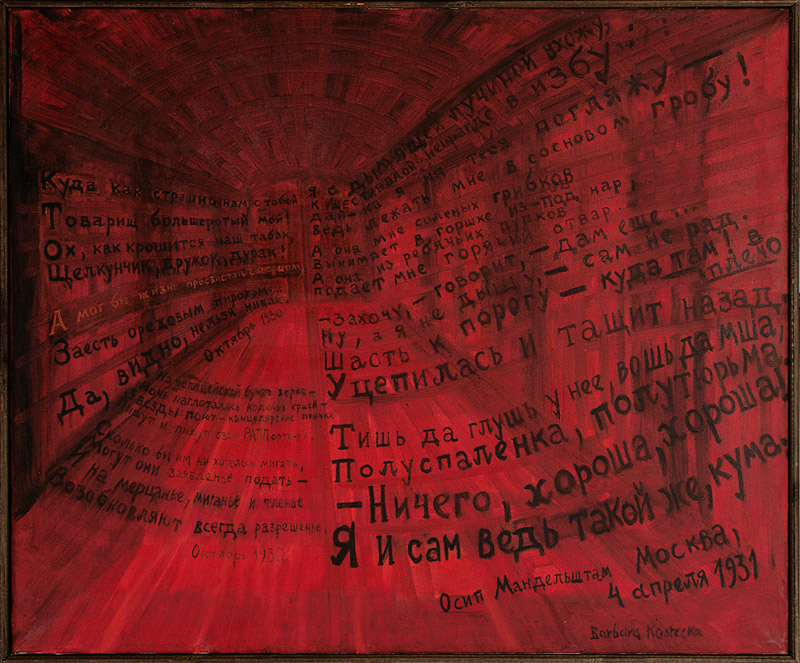 Куда как страшно нам с тобой
Товарищ большеротый мой!
Ох, как крошится наш табак
Щелкунчик, дружок, дурак!
А мог бы жизнь просвистать скворцом
Заесть ореховым пирогом...
Да, видно, нельзя никак.
Октябрь 1930
Из полицейской бумаги верже —
Ночь наглоталась колючих ершей —
Звезды поют — канцелярские птички
Пишут и пишут свои
Сколько бы им ни хотелось мигать,
Могут они заявленье подать —
И на мерцанье, миганье и тленье
Возобновляют всегда разрешенье,
Октябрь 1930.
Я с дымящей лучиной вхожу
К шестипалой неправде в избу...
дай-ка я на тебя погляжу —
ведь лежать мне в сосновом гробу!
А она мне соленых грибков
Вынимает в горшке из-под нар,
А она из ребячьих пупков
подает мне горячий отвар.
-Захочу,- говорит,- дам еще...
Ну, а я не дышу,- сам не рад.
Шасть к порогу — куда там! в плечо
Уцепилась и тащит назад.
Тишь да глушь у нее, вошь да мша,
Полуспаленка, полутюрьма.
—Ничего, хороша, хороша!
Я и сам ведь такой же, кума.
Москва,
Осип Мандельштам 4 апреля 1931
Barbara Kostecka